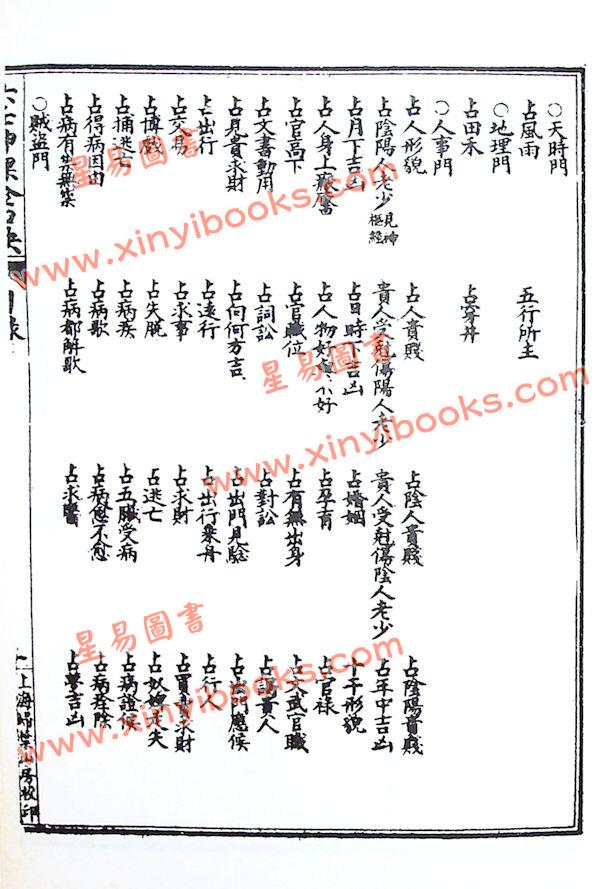 ○天時門
占風雨 五行所主
○地理門
占田禾 占穿井
○人事門
占人形貌 占人貴賤 占陰人貴賤 占陰陽貴賤
占陰陽人老少見神樞經 貴人受尅傷陽人老少 貴人受尅傷陰人老少 占年中吉凶
占月下吉凶 占日時下吉凶 占婚姻 十干形貌
占人身上 占人物好與不好 占孕育 占官祿
占官高下 占官職位 占有無出身 占文武官職
占文書動用 占詞訟 占對訟 占謁貴人
占見貴求財 占向何方吉 占出門見 占出門應候
占出行 占遠行 占出行乘舟 占行人
占交易 占求事 占求財 占買賣求財
占博戲 占失脫 占逃亡 占奴婢走失
占捕逃亡 占病疾 占五臟受病 占病證候
占得病因由 占病歌 占病愈不愈 占病痊除
占病有祟無祟 占病都解歌 占求醫 吉凶
○賊盜門
六壬神課金口訣 目錄 一 上海掃葉山房校印
星易圖書
www.xinyibooks.com
星易圖書
www.xinyibooks.com
星易圖書
www.xinyibooks.com